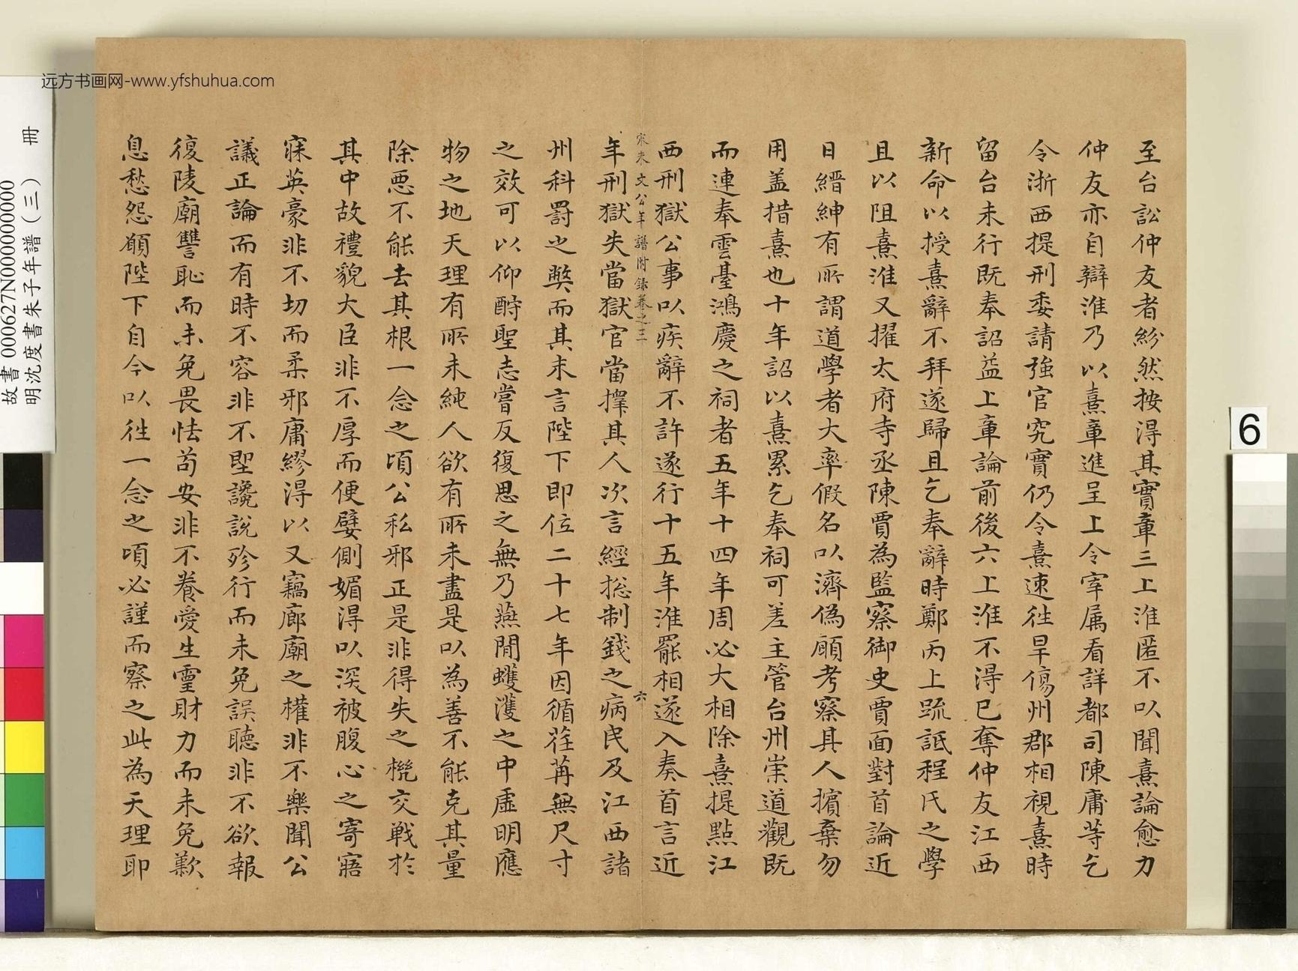 远方书画网-www.yfshuhua.com
至台訟仲友者紛然按得其實章三上淮匿不以聞熹論愈力
仲友亦自辯淮乃以熹章進呈上令宰属看詳都司陳庸等乞
令浙西提刑委請強官究實仍令熹速徃旱傷州郡相視熹時
留台未行既奉詔益上章論前後六上淮不得已奪仲友江西
新命以授熹辭不拜遂歸且乞奉辭時鄭丙上疏詆程氏之學
且以阻熹淮又擢太府寺丞陳賈為監察御史賈面對首論近
日縉紳有所謂道學者大率假名以濟偽願考察其人擯棄勿
用蓋措熹也十年詔以熹累乞奉祠可差主管台州崇道觀既
而連奉雲臺鴻慶之祠者五年十四年周必大相除熹提點江
西刑獄公事以疾辭不許遂行十五年淮罷相遂入奏首言近
宋朱文公年譜附錄卷之三
六
年刑獄失當獄官當擇其人次言經総制錢之病民及江西諸
州科罰之獘而其末言陛下即位二十七年因循荏苒無尺寸
之效可以仰酧聖志嘗反復思之無乃燕閒蠖濩之中虛明應
物之地天理有所未純人欲有所未盡是以為善不能克其量
除惡不能去其根一念之頃公私邪正是非得失之機交戰於
其中故禮貌大臣非不厚而便嬖側媚得以深被腹心之寄寤
寐英豪非不切而柔邪庸繆得以又竊廊廟之權非不樂聞公
議正論而有時不容非不堲讒說殄行而未免誤聽非不欲報
復陵廟讐恥而未免畏怯苟安非不養愛生靈財力而未免歎
息愁怨願陛下自今以徃一念之頃必謹而察之此為天理耶
冊
故書000627N000000000
明沈度書朱子年譜(三)
6